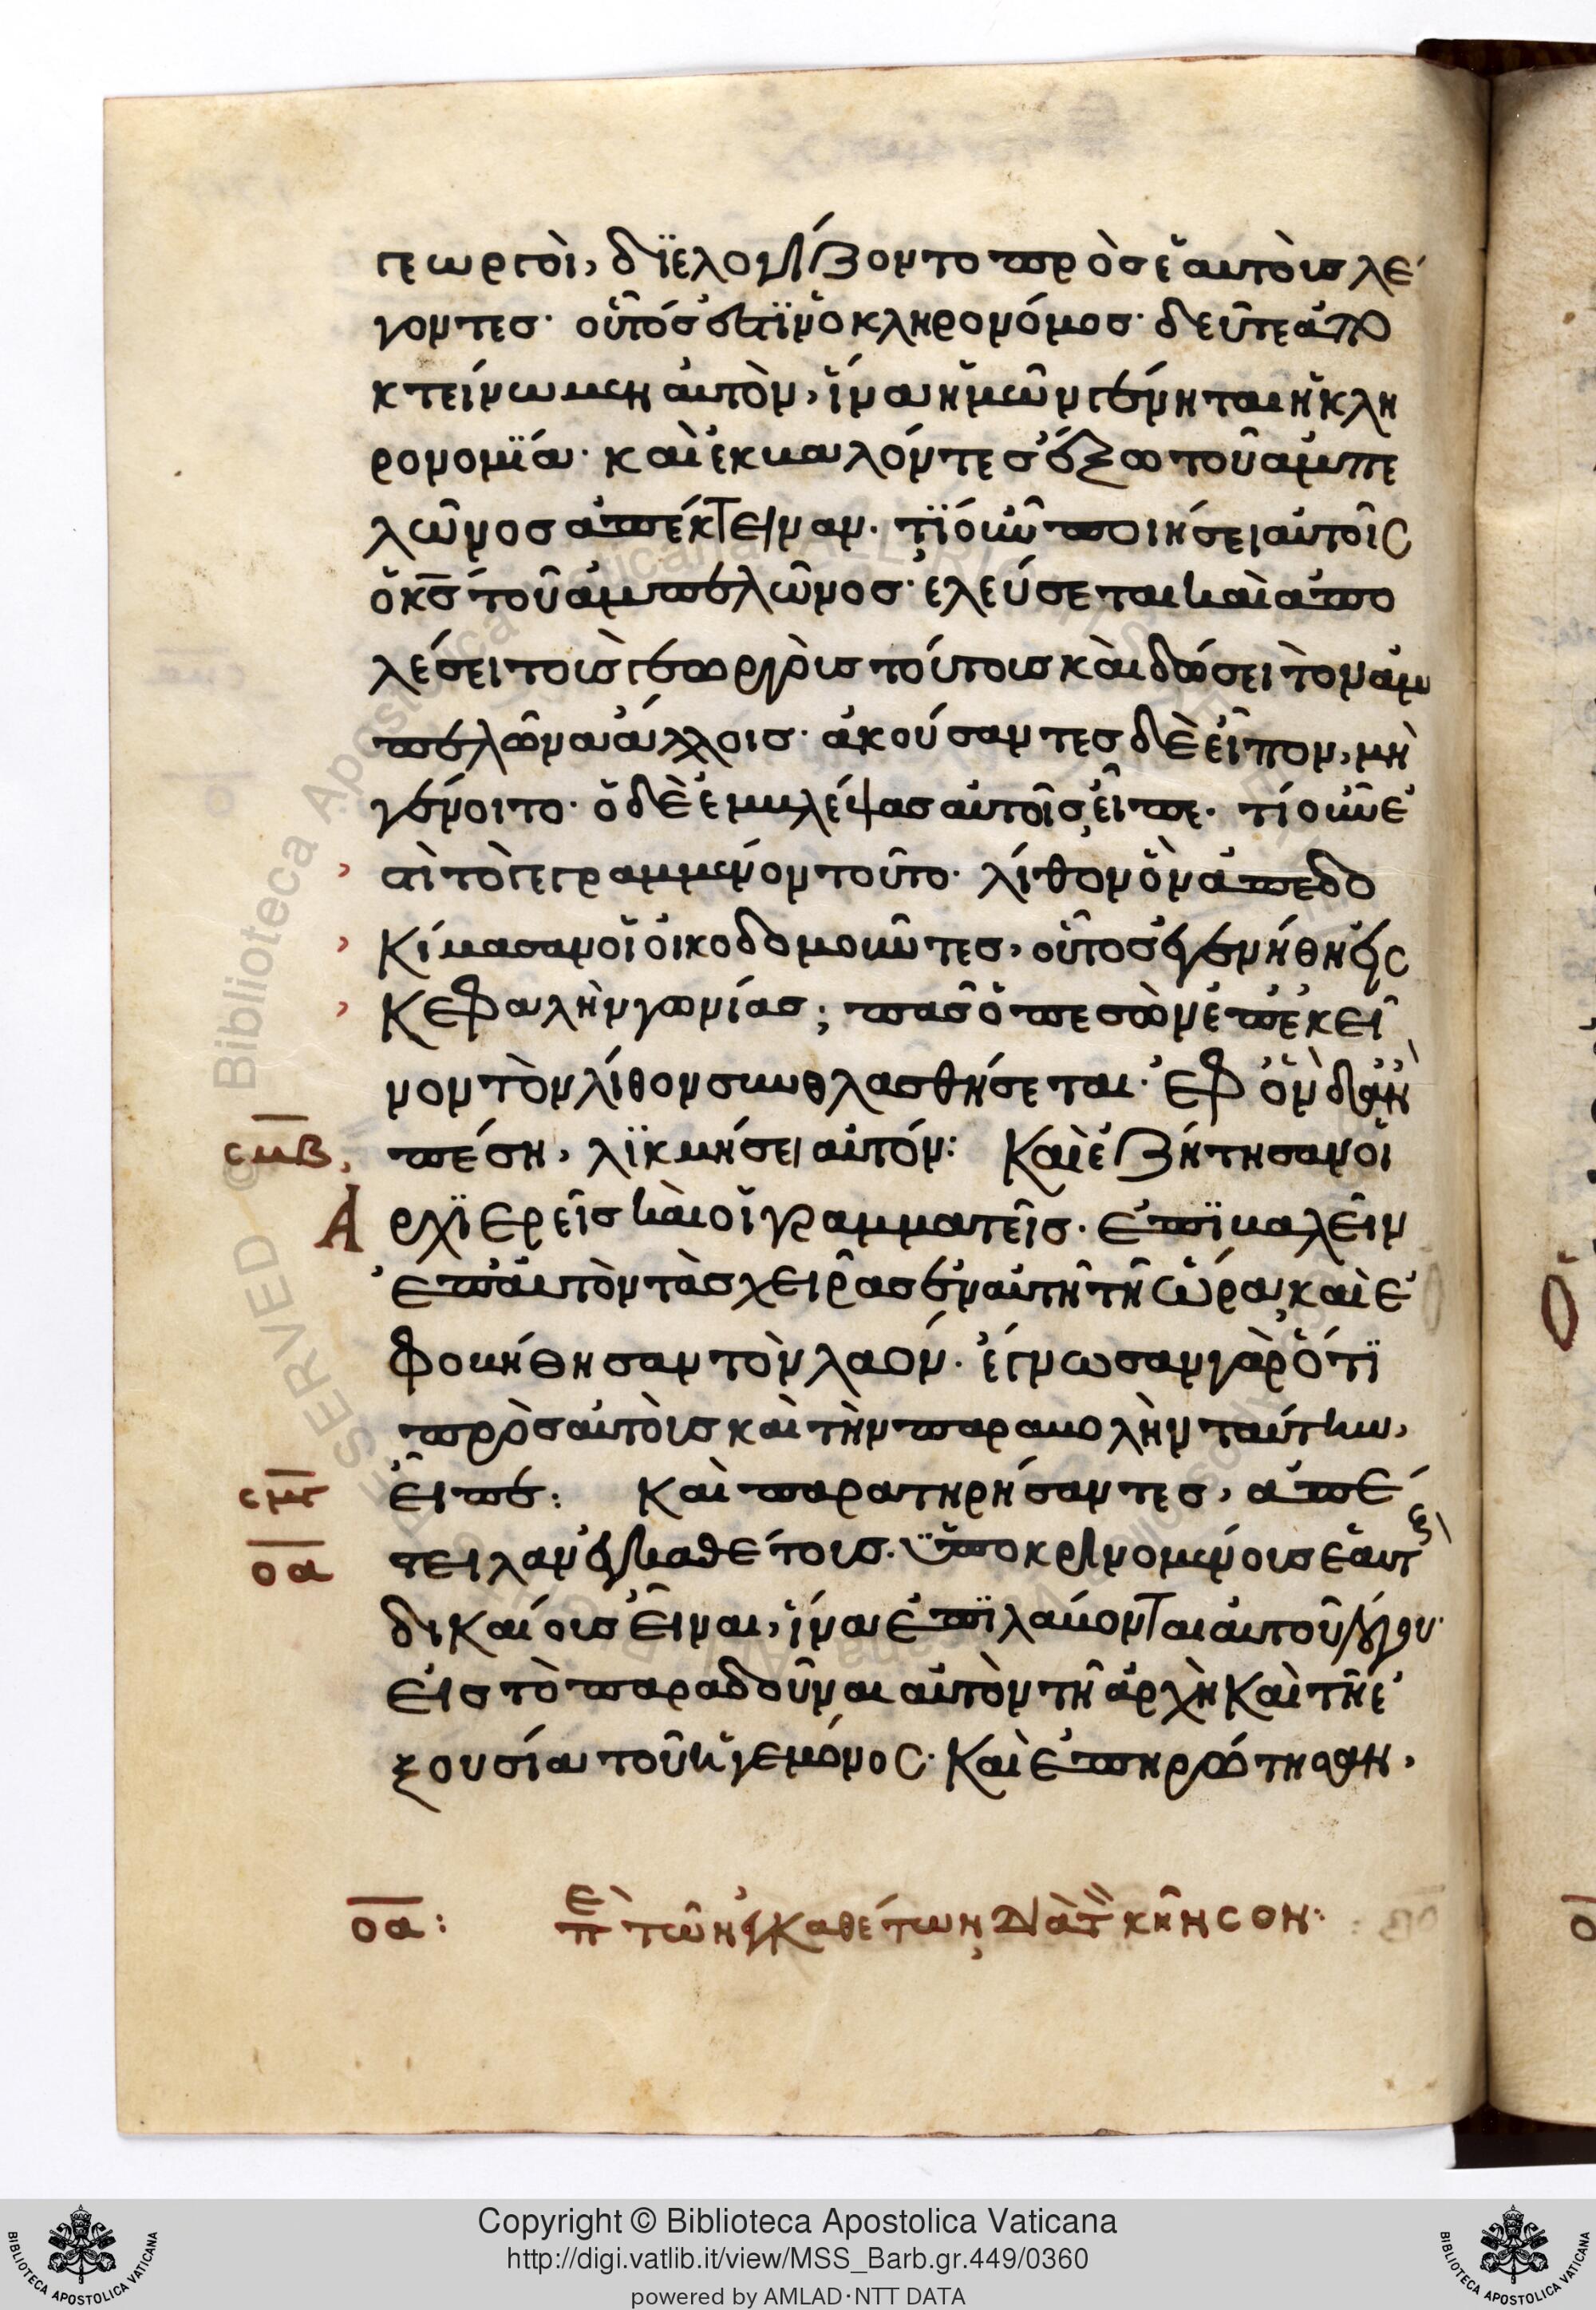 γεωργοὶ, διελογίζοντο πρὸσ ἑαυτοὺσ λέ
γοντεσ· οὗτόσ ἐστϊν ὁ κληρονόμοσ· δεῦτε ἀπο
κτείνωμεν αὐτὸν, ἵνα ἡμῶν γένηται ἡ κλη
ρονομΐα· καὶ ἐκβαλόντεσ ἔξω τοῦ ἀμπε
λῶνοσ ἀπέκτειναν· τΐ οὖν ποιήσει αὐτοῖσ
ὁ κ̅σ̅ τοῦ ἀμπελῶνοσ· ἐλεύσεται καὶ ἀπο
λέσει τοὺσ γεωργοὺσ τούτουσ καὶ δώσει τὸν ἀμ
πελῶνα ἄλλοισ· ἀκούσαντεσ δὲ εἶπον, μὴ
γένοιτο· ὁ δὲ ἐμβλέψασ αὐτοῖσ, εἶπε· τί οὖν ἐ
στὶ τὸ γεγραμμένον τοῦτο· λίθον ὃν ἀπεδο
κίμασαν οἱ οἰκοδομοῦντεσ, οὗτοσ ἐγενήθη εἰσ
κεφαλὴν γωνίασ; πᾶσ ὁ πεσὼν ἐπ' ἐκεῖ
νον τὸν λίθον συνθλασθήσεται· ἐφ' ὃν δ' ἂν
σ̅μ̅β̅ πέση, λϊκμήσει αὐτόν: Καὶ ἐζήτησαν οἱ
Ἀρχϊερεῖσ καὶ οἱ γραμματεῖσ· ἐπϊβαλεῖν
ἐπ' αὐτὸν τὰσ χεῖρασ ἐν αὐτῆ τῆ ὥρα, καὶ ἐ
φοβήθησαν τὸν λαόν· ἔγνωσαν γὰρ ὅτϊ
πρὸσ αὐτοὺσ καὶ τὴν παραβολὴν ταύτην,
σ̅μ̅γ̅ εἶπε: Καὶ παρατηρήσαντεσ, ἀπέ
ο̅α̅ τειλαν ἐγκαθέτουσ· ὑποκρινομένουσ ἑαυτ
δικαίουσ εἶναι, ἵνα ἐπϊλάβονται αὐτοῦ λόγου·
εἰσ τὸ παραδοῦναι αὐτὸν τῆ ἀρχῆ καὶ τῆ ἐ
ξουσία τοῦ ἡγεμόνοσ· Καὶ ἐπηρώτησαν,
ο̅α̅: πε τῶν ἐγκαθέτων, διὰ τ κῆνσον:
Copyright © Biblioteca Apostolica Vaticana
http://digi.vatlib.it/view/MSS_Barb.gr.449/0360
powered by AMLAD·NTT DATA
BIBLIOTECA APOSTOLICA VATICANA
BIBLIOTECA APOSTOLICA VATICANA